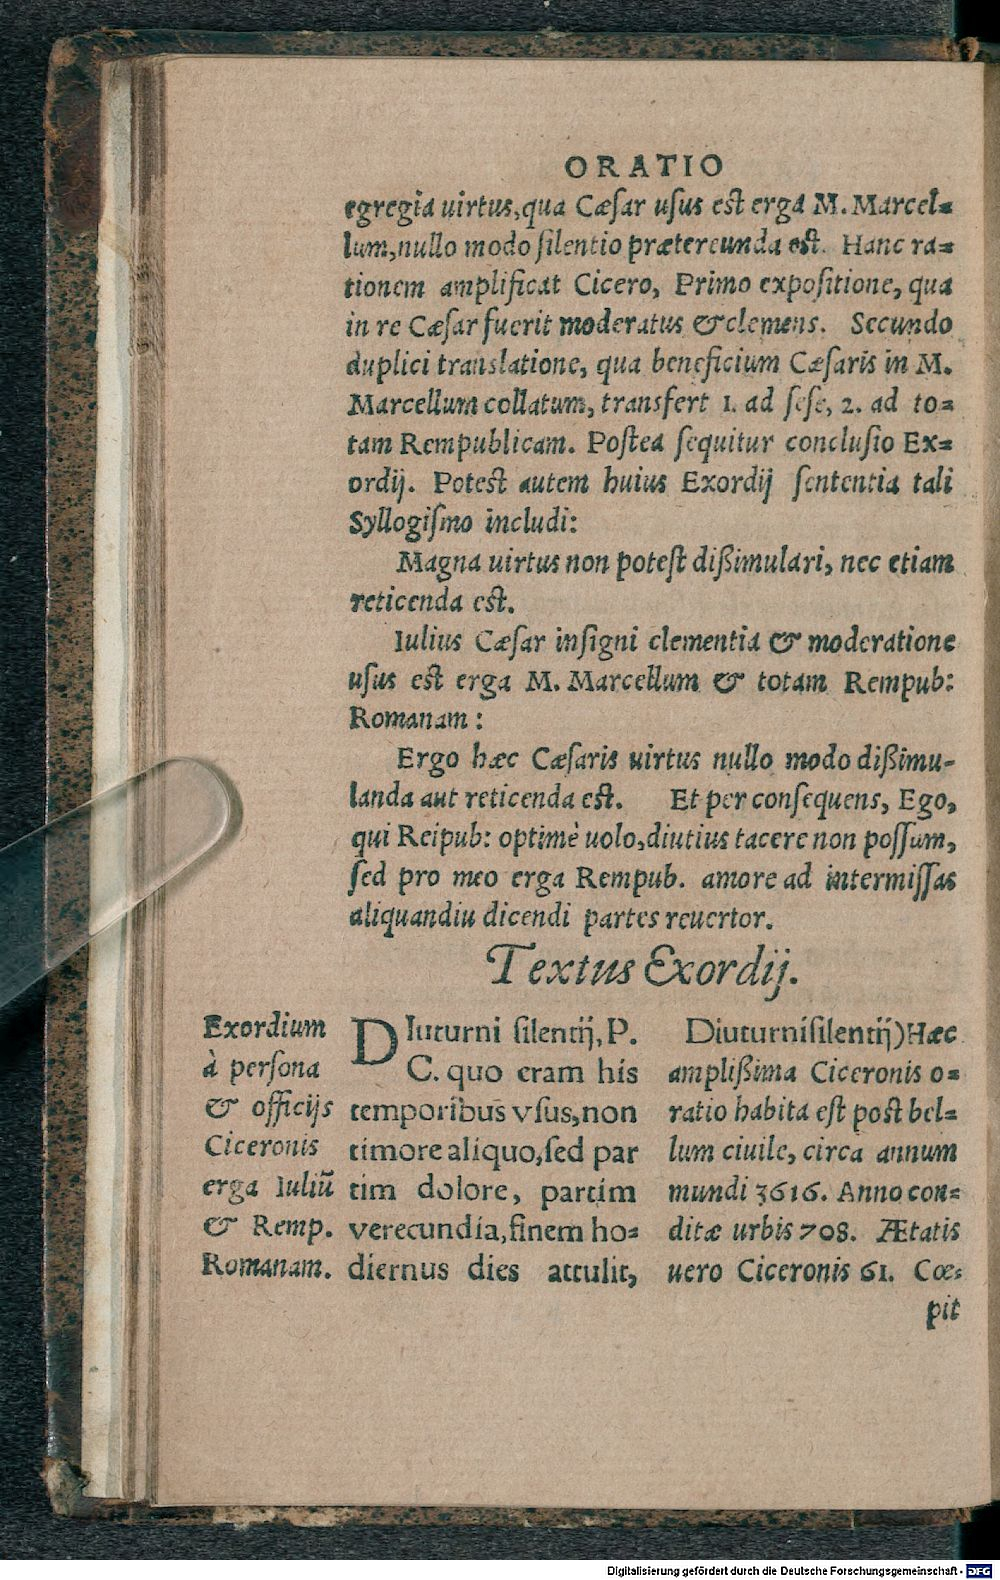 ORATIO
egregia uirtus, qua Cæſar uſus eſt erga M. Marcel=
lum, nullo modo ſilentio prætereunda eſt. Hanc ra=
tionem amplificat Cicero, Primo expoſitione, qua
in re Cæſar fuerit moderatus & clemens. Secundo
duplici translatione, qua beneficium Cæſaris in M.
Marcellum collatum, transfert 1. ad ſeſe, 2. ad to=
tam Rempublicam. Poſtea ſequitur concluſio Ex=
ordij. Poteſt autem huius Exordij ſententia tali
Syllogiſmo includi:
Magna uirtus non poteſt dißimulari, nec etiam
reticenda eſt.
Iulius Cæſar inſigni clementia & moderatione
uſus eſt erga M. Marcellum & totam Rempub:
Romanam:
Ergo hæc Cæſaris uirtus nullo modo dißimu-
landa aut reticenda eſt. Et per conſequens, Ego,
qui Reipub: optimè uolo, diutius tacere non poſſum,
ſed pro meo erga Rempub. amore ad intermiſſas
aliquandiu dicendi partes reuertor.
Textus Exordij.
Exordium
à perſona
& officijs
Ciceronis
erga Iuliū
& Remp.
Romanam.
DIuturni ſilentij, P.
C. quo eram his
temporibus vſus, non
timore aliquo, ſed par
tim dolore, partim
verecundia, finem ho=
diernus dies attulit,
Diuturni ſilentij) Hæc
amplißima Ciceronis o=
ratio habita eſt poſt bel=
lum ciuile, circa annum
mundi 3616. Anno con=
ditæ urbis 708. Ætatis
uero Ciceronis 61. Cœ=
pit
Digitalisierung gefördert durch die Deutsche Forschungsgemeinschaft - DFG